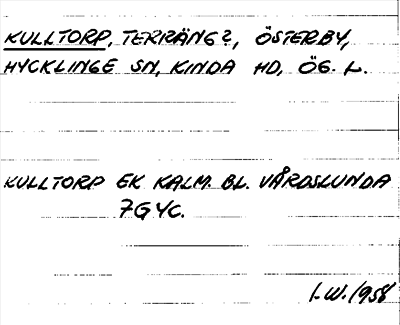 KULLTORP, TERRÄNG?, ÖSTERBY,
HYCKLINGE SN, KINDA HD, ÖG. L.
KULLTORP EK KALM. BL. VÅRDSLUNDA
7G4C.
I.W. 1958